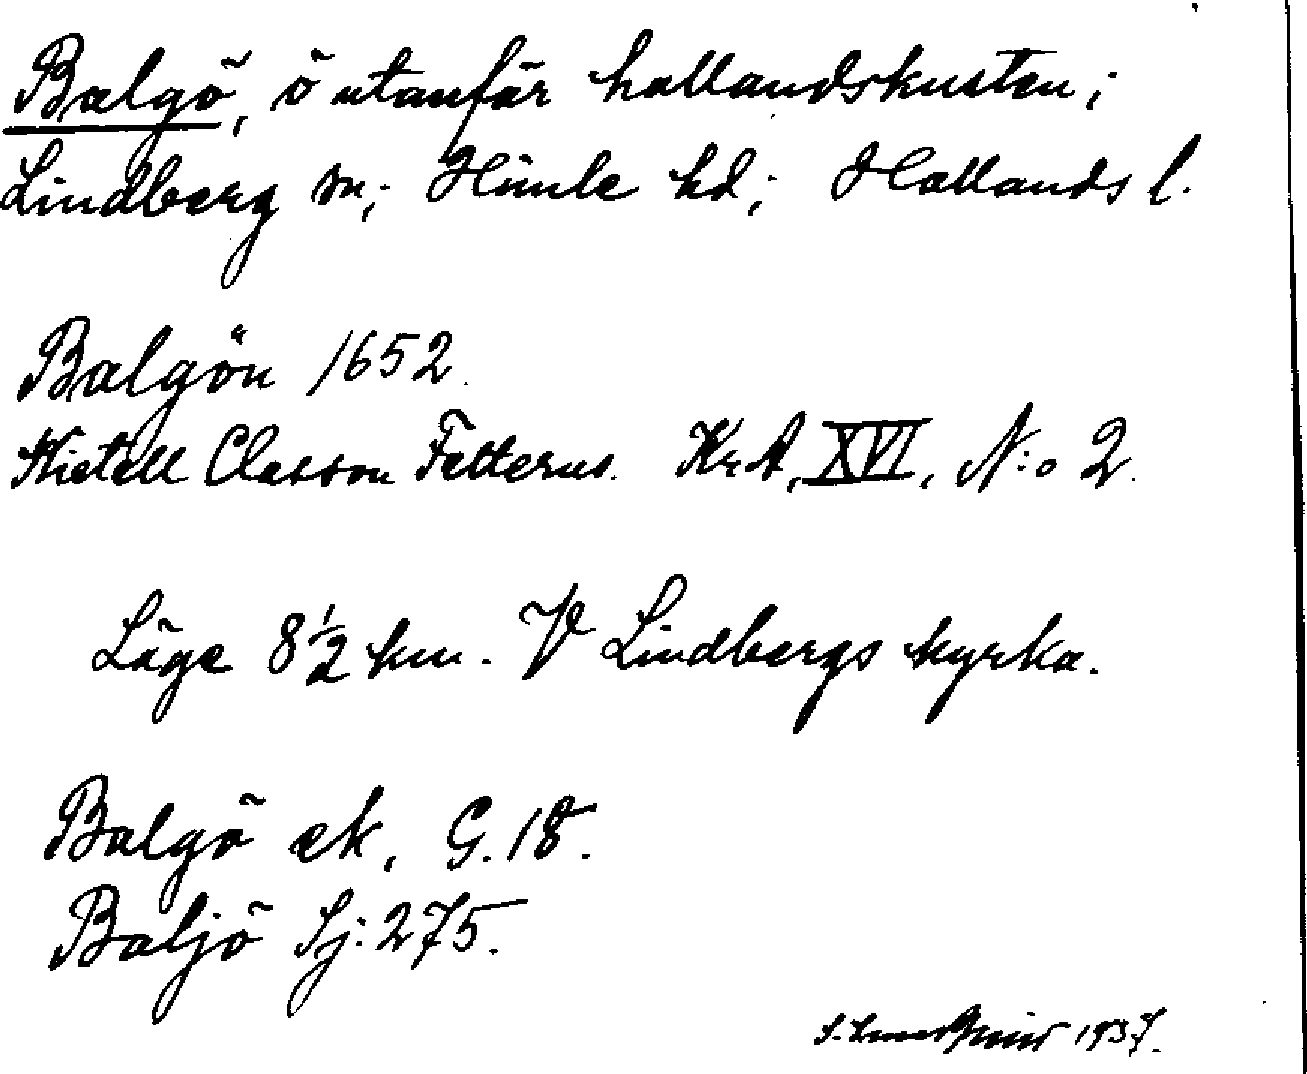 Balgö, ö utanför hallandskusten;
Lindberg sn; Himle hd; Hallands l.
Balgön 1652.
Kietell Classon Felterus. Kr.A, XVI, N:o 2.
Läge 8½ km. V Lindbergs kyrka.
Balgö ek. G. 18.
Baljö Sj: 275.
1937.